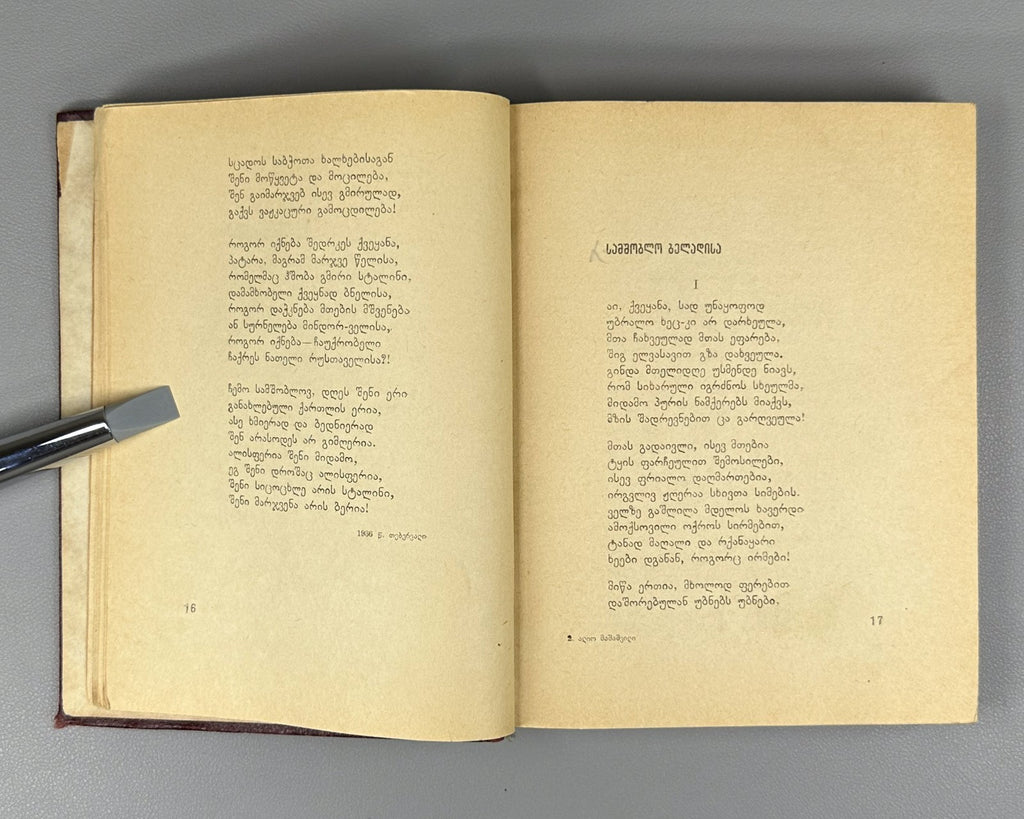 სცადოს საბჭოთა ხალხებისაგან
შენი მოწყვეტა და მოცილება,
შენ გაიმარჯვებ ისევ გმირულად,
გაქვს ვაჟკაცური გამოცდილება!
როგორ იქნება შედრკეს ქვეყანა,
პატარა, მაგრამ მარჯვე წელისა,
რომელმაც ჰშობა გმირი სტალინი,
დამამხობელი ქვეყნად ბნელისა,
როგორ დაჭკნება მთების მშვენება
ან სურნელება მინდორ-ველისა,
როგორ იქნება—ჩაუქრობელი
ჩაქრეს ნათელი რუსთაველისა?!
ჩემო სამშობლოვ, დღეს შენი ერი
განახლებული ქართლის ერია,
ასე ხმიერად და ბედნიერად
შენ არასოდეს არ გიმღერია.
ალისფერია შენი მიდამო,
ეგ შენი დროშაც ალისფერია,
შენი სიცოცხლე არის სტალინი,
შენი მარჯვენა არის ბერია!
1936 წ. თებერვალი
16
სამშობლო ბელადისა
I
აი, ქვეყანა, სად უნაყოფოდ
უბრალო ხეც-კი არ დარხეულა,
მთა ჩახვეულად მთას ეფარება,
შიგ ელვასავით გზა დახვეულა.
გინდა მთელიდღე უსმენდე ნიავს,
რომ სიხარული იგრძნოს სხეულმა,
მიდამო პურის ნამქერებს მიაქვს,
მზის შადრევნებით ცა გარღვეულა!
მთას გადაივლი, ისევ მთებია
ტყის ფარჩეულით შემოსილები,
ისევ ფრიალო დაღმართებია,
ირგვლივ ჟღერაა სხივთა სიმების.
ველზე გაშლილა მდელოს ხავერდი
ამოქსოვილი ოქროს სირმებით,
ტანად მაღალი და რქანაყარი
ხეები დგანან, როგორც ირმები!
მიწა ერთია, მხოლოდ ფერებით
დაშორებულან უბნებს უბნები.
2. ალიო მაშაშვილი
17